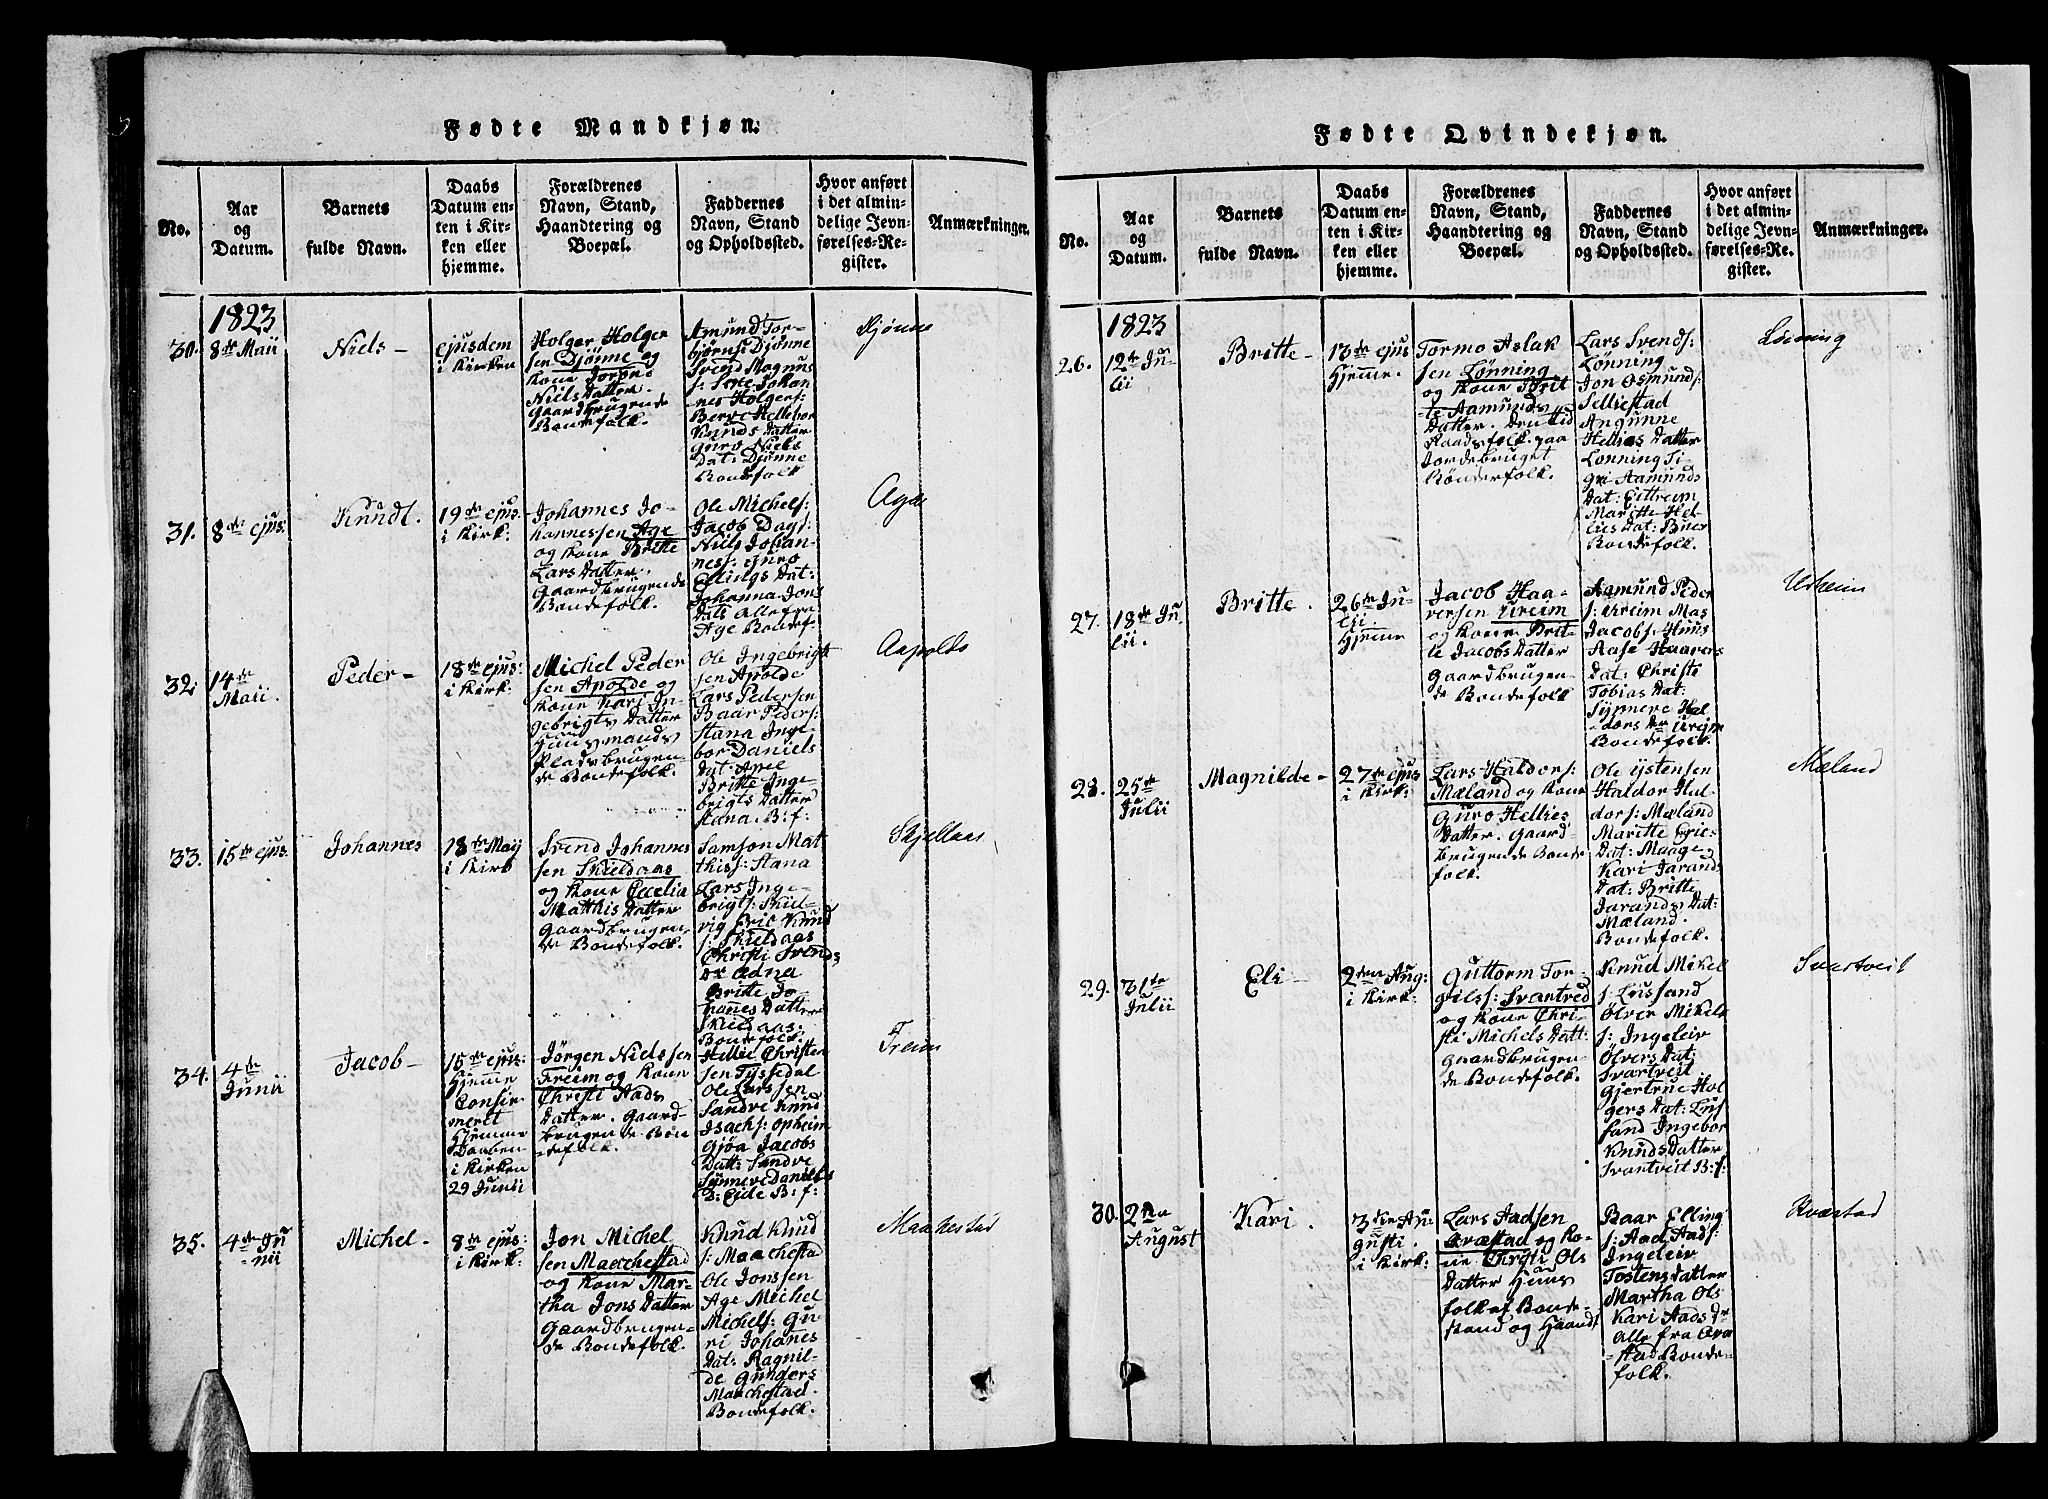 Fødte Mandkjøn.
No.
Aar
og
Datum.
Barnets
fulde Navn.
Daabs
Datum en-
ten i Kir-
ken eller
hjemme.
Forældrenes
Navn, Stand,
Haandtering og
Boepæl.
Faddernes
Navn, Stand
og Opholdssted.
Hvor anført
i det almin-
delige Jevn-
førelses-Re-
gister.
Anmærkninger.
1823
30.
8de Maii
Niels –
ejusdem
i Kirken
Holger Holger
sen Djønne og
Kone
Niels Datter.
Gaardbrugende
Bondefolk.
Amund Tor-
bjørns: Djønne
Svend Magnus
s: Johan
nes Holgers:
Berve Hellebor
Knuds Datter
Guro Niels
Dat: Djønne
Bondefolk
Djønne
31.
8de ejus.
Knudt.
19de ejus:
i Kirk:
Johannes Jo-
hannessen Age
og Kone Britte
Lars Datter.
Gaardbrugende
Bondefolk.
Ole Michels:
Jacob Dags:
Niels Johan-
nes:
Ellings Dat:
Johanna Jons
Dat: alle fra
Age Bondef.
Aga
32.
14de
Maii.
Peder –
18de ejus:
i Kirk:
Michel Peder
sen Apolde og
Kone Kari In-
gebrigts Datter
Huusmands
Pladsbrugen-
de Bondefolk.
Ole Ingebrigt
sen Apolde
Lars Pedersen
Baar Peders:
Stana Inge-
bor Daniels
Dat:
Britte Inge-
brigts Datter
Stana. B: f:
Aapolde
33.
15de ejus.
Johannes
18de Maij
i Kirk
Svend Johannes
sen Skieldaas
og Kone Cecelia
Matthis Datter
Gaardbrugen-
de Bondefolk.
Samson Mat
this: Stana
Lars Inge-
brigts: Skiel-
vig Eric Knud
s: Skieldaas
Christi Svends
Dr Edna
Britte Jo-
hannes Datter
Skieldaas.
Bondefolk.
Skjeldaas
34.
4de
Junii
Jacob –
15de ejus:
Hjemme
Confir
meret
Hjemme
Daaben
i Kirken
29 Junii
Jørgen Nielssen
Freim og Kone
Christi Aads
Datter. Gaard-
brugende Bon
-defolk.
Hellie Christen
sen Tyssedal
Ole Larssen
Sandve Knud
Isachs: Opheim
Gjøa Jacobs
Datt: Sandve
Synneve Daniels
D: Eide B: f:
Freim
35.
4de Ju
-nii
Michel –
8de ejus:
i Kirk:
Jon Michel
sen Maachestad
og Kone Mar-
tha Jons Datter
Gaardbrugen-
de Bondefolk.
Knud Knud
s: Maachesta
Ole Jonssen
Age Michel
Michels: Gu-
ri Johanes
Dat: Ragnil-
de Gunders
Maachestad.
Bondefolk.
Maakestad
Fødte Qvindekjøn.
No.
Aar
og
Datum.
Barnets
fulde Navn.
Daabs
Datum en-
ten i Kir-
ken eller
hjemme.
Forældrenes
Navn, Stand,
Haandtering og
Boepæl.
Faddernes
Navn, Stand
og Opholdssted.
Hvor anført
i det almin-
delige Jevn-
førelses-Re-
gister.
Anmærkninger.
1823
26.
12te Ju-
lii
Britte –
13de ejus
Hjemme.
Tormo Aslak
sen Lønning
og Kone Brit
-te Aamunds
Datter.
folk. paa
Jordebruget
Bønderfolk.
Lars Svends:
Lønning
Jon Osmunds:
Selliestad
Angunne
Hellies Datter
Lønning Ti-
gri Aamunds
Dat: Eittreim
Maritte Hel-
lies Dat: Buer
Bondefolk.
Lønning
27.
18de Ju
lii.
Britte.
26de Ju-
lii
Hjemme
Jacob Haa-
versen Ureim
og Kone Brit-
te Jacobs Datter
Gaardbrugen-
de Bondefolk
Aamund Peder
s: Ureim Mas
Jacobs: Huus
Aase Haavers
Dat: Christi
Tobias Dat:
Synneve Hal-
dors Dr Ureim
Bondefolk.
Urheim
28.
25de
Julii
Magnilde –
27de ejus
i Kirk:
Lars Haldors:
Mæland og Kone
Guro Hellies
Datter. Gaard-
brugende Bonde
folk.
Ole Ystensen
Haldor Hal-
dors: Mæland
Maritte Eric-
Dat: Maage
Kari Jarands
Dat: Britte
Jarands Dat:
Mæland.
Bondefolk.
Mæland
29.
31te
Julii
Eli –
2den Aug:
i Kirk:
Guttorm Tor-
gils: Svartved
og Kone Chri-
sti Michels Datt:
Gaardbrugen-
de Bondefolk.
Knud Mikel
s: Lussand
Ølver Mikels
s: Ingeleiv
Ølvers Dat:
Svartveit
Gjertrue Hol
gers Dat: Lus
sand Ingebor
Knuds Datter
Svartveit B: f:
Svartveit
30.
2den
August
Kari.
3die Au
gusti.
i Kirk:
Lars Aadsen
Qvæstad og Ko-
ne Christi Ols
Datter Huus
folk af Bonde-
stand og Haandt
Baar Elling
s: Aad Aads:
Ingeleiv
Tostens Datter
Martha Ols
Kari Aads Dr
alle fra Qvæ
-stad Bonde-
folk.
Kvæstad